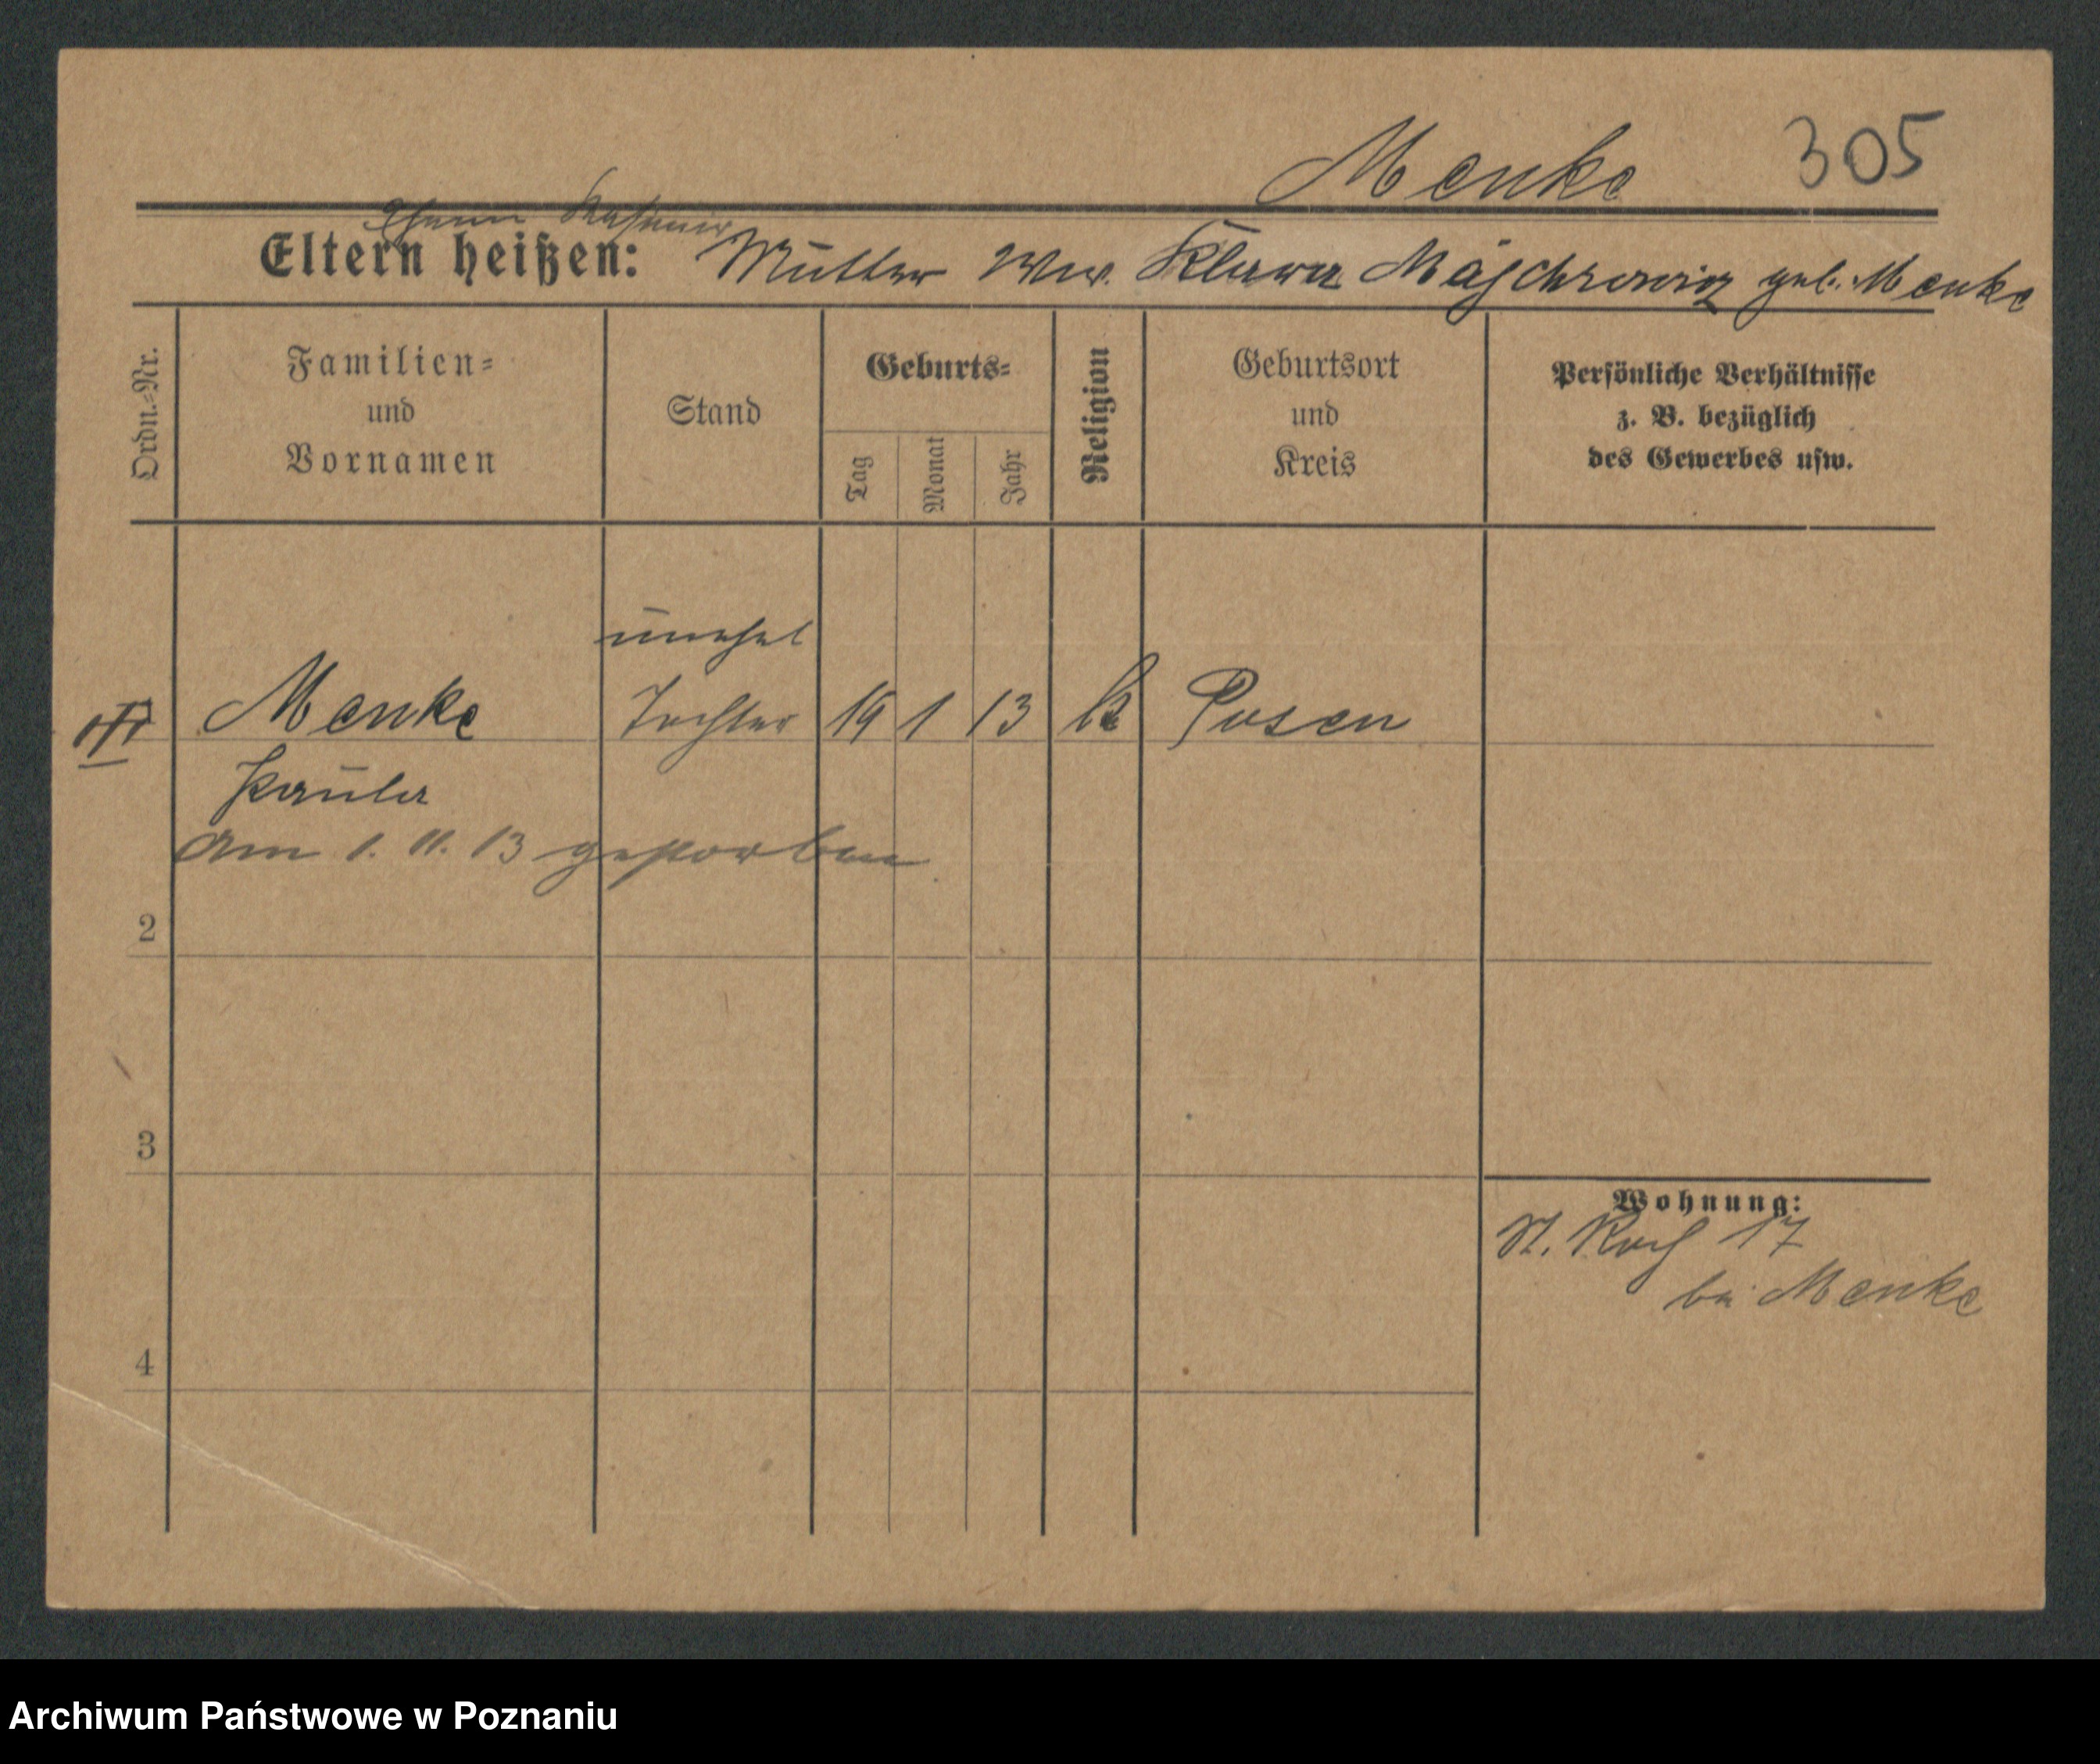 Menke 305
Eltern heißen: Mutter Ww. Klara Majchrowicz geb. Menke
Ordn.-Nr.
Familien-
und
Vornamen
Stand
Geburts-
Tag
Monat
Jahr
Religion
Geburtsort
und
Kreis
Persönliche Verhältnisse
z. B. bezüglich
des Gewerbes usw.
unehel
Menke Tochter 19 1 13 k Posen
Paula
am 1. 11. 13 gestorben
2
3
Wohnung:
St. Roch 17
bei Menke
4
Archiwum Państwowe w Poznaniu